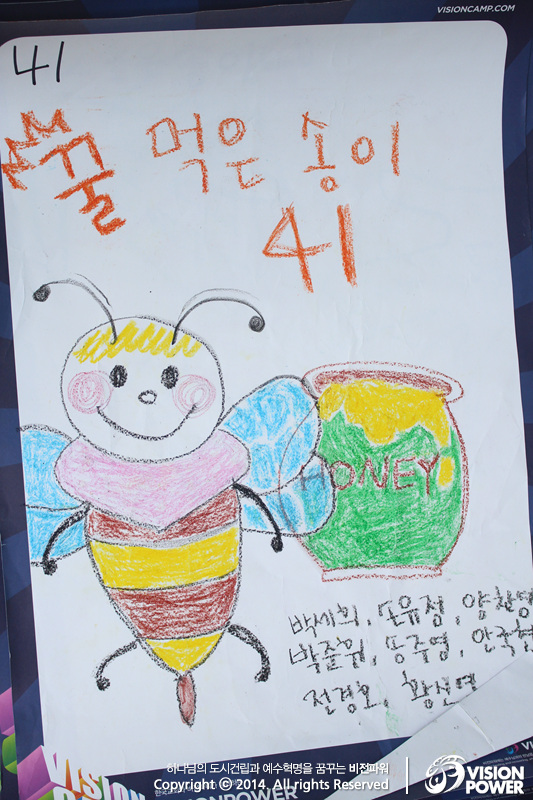 VISIONCAMP.COM
41
꿀 먹은 송이
41
HONEY
박세희, 도유정, 양찬영
박준휘, 송주영, 안국현
전경호, 황선영
하나님의 도시건립과 예수혁명을 꿈꾸는 비전파워
Copyright © 2014. All Rights Reserved
VISION
POWER